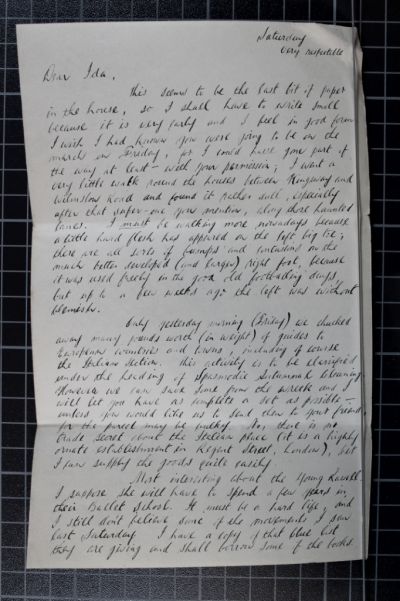 Saturday
Very respectable
Dear Ida,
This seems to be the last bit of paper
in the house, so I shall have to write small
because it is very early and I feel in good form
I wish I had known you were going to be on the
march on Friday, for I could have gone part of
the way at least – with your permission; I went a
very little walk round the houses between Kingsway and
Wilmslow Road and found it rather dull, especially
after that super-one you mention, along those haunted
lanes. I must be walking more nowadays because
a little hard flesh has appeared on the left big toe;
there are all sorts of bumps and contusions on the
much better developed (and larger) right foot, because
it was used freely in the good old footballing days,
but up to a few weeks ago the left was without
blemish.
Only yesterday morning (Friday) we chucked
away many pounds worth (in weight) of guides to
European countries and towns, including of course
the Italian section. This activity is to be classified
under the heading of Spasmodic Autumnal Cleaning.
However we can save some from the wreck and I
will let you have as complete a set as possible –
unless you would like us to send them to your friend,
for the parcel may be bulky. No, there is no
trade secret about the Italian place (it is a highly
ornate establishment in Regent Street, London), but
I can supply the goods quite easily.
Most interesting about the young
I suppose she will have to spend a few years in
their Ballet School. It must be a hard life, and
I still don't believe some of the movements I saw
last Saturday. I have a copy of that blue list
they are giving and shall borrow some of the books.